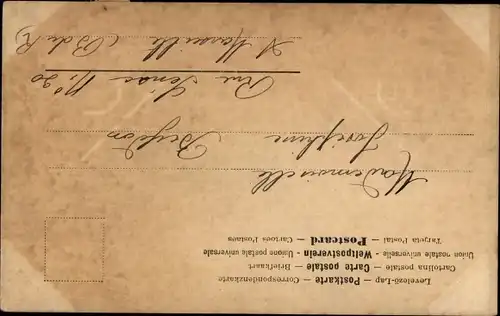 Levelező-Lap — Postkarte — Correspondenzkarte
Cartolina postale — Carte postale — Briefkaart
Union postale universelle - Weltpostverein - Unione postale universale
Targeta Postal — Postcard — Cartoes Postaes
Mademoiselle
Joséphine
Rue Sénac N° 20
A Marseille (B du R)